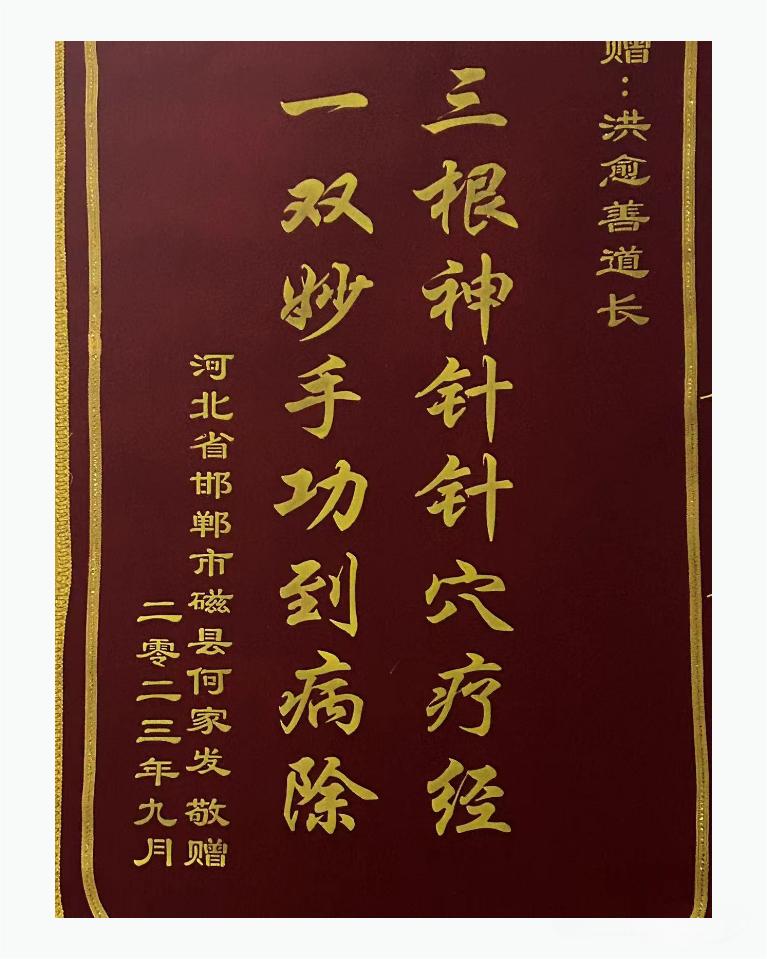 赠：洪愈善道长
三根神针针穴疗经
一双妙手功到病除
河北省邯郸市磁县何家发 敬赠
二零二三年九月